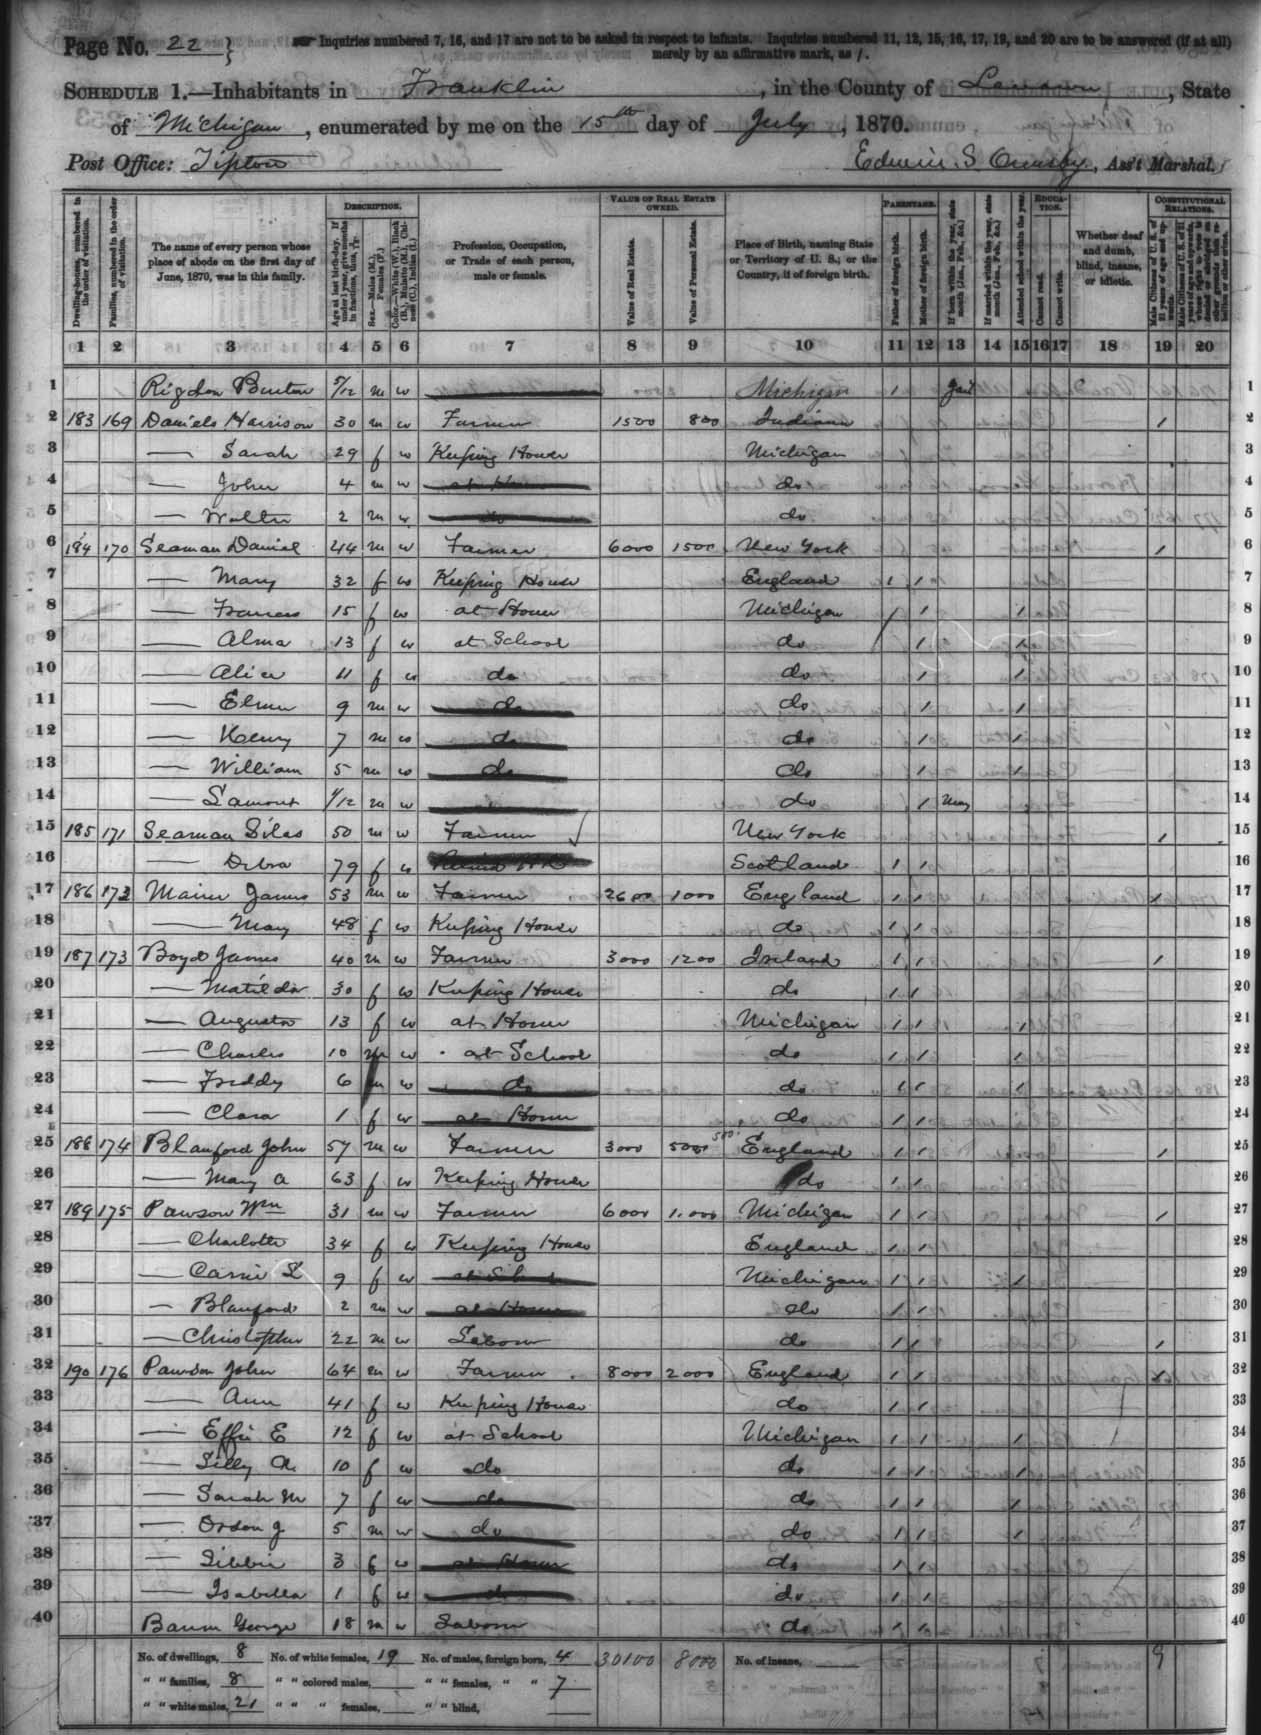 Page No. 22 } Inquiries numbered 7, 16, and 17 are not to be asked in respect to infants. Inquiries numbered 11, 12, 15, 16, 17, 19, and 20 are to be answered (if at all)
merely by an affirmative mark, as /.
SCHEDULE 1.—Inhabitants in Franklin, in the County of Lenawee, State
of Michigan, enumerated by me on the 15th day of July, 1870.
Post Office: Tipton Edwin S Ormsby, Ass't Marshal.
Dwelling-houses, numbered in the order of visitation.
Families, numbered in the order of visitation.
The name of every person whose place of abode on the first day of June, 1870, was in this family.
DESCRIPTION.
Age at last birth-day. If under 1 year, give months in fractions, thus, 
Sex.—Males (M.), Females (F.)
Color.—White (W.), Black (B.), Mulatto (M.), Chinese (C.), Indian (I.)
Profession, Occupation, or Trade of each person, male or female.
VALUE OF REAL ESTATE OWNED.
Value of Real Estate.
Value of Personal Estate.
Place of Birth, naming State or Territory of U. S.; or the Country, if of foreign birth.
PARENTAGE.
Father of foreign birth.
Mother of foreign birth.
If born within the year, state month (Jan., Feb., &c.)
If married within the year, state month (Jan., Feb., &c.)
Attended school within the year.
EDUCATION.
Cannot read.
Cannot write.
Whether deaf and dumb, blind, insane, or idiotic.
CONSTITUTIONAL RELATIONS.
Male Citizens of U. S. of 21 years of age and upwards.
1 2 3 4 5 6 7 8 9 10 11 12 13 14 15 16 17 18 19 20
1 Rigdon Burton 5/12 m w Michigan 1 Jan 1
2 183 169 Daniels Harrison 30 m w Farmer 1500 800 Indiana 1 2
3 — Sarah 29 f w Keeping House Michigan 3
4 — John 4 m w at Home do 4
5 — Walter 2 m w do do 5
6 184 170 Seaman Daniel 44 m w Farmer 6000 1500 New York 1 6
7 — Mary 32 f w Keeping House England 1 1 7
8 — Frances 15 f w at Home Michigan / 1 1 8
9 — Alma 13 f w at School do 1 1 9
10 — Alice 11 f w do do 1 1 10
11 — Elmer 9 m w do do 1 1 11
12 — Henry 7 m w do do 1 1 12
13 — William 5 m w do do 1 1 13
14 — Lamont 1/12 m w do 1 May 14
15 185 171 Seaman Silas 50 m w Farmer New York 1 15
16 — Debra 79 f w Scotland 1 1 16
17 186 172 James 53 m w Farmer 2600 1000 England 1 1 1 17
18 — Mary 48 f w Keeping House do 1 1 18
19 187 173 Boyd James 40 m w Farmer 3000 1200 Ireland 1 1 1 19
20 — Matilda 30 f w Keeping House do 1 1 20
21 — Augusta 13 f w at Home Michigan 1 1 1 21
22 — Charles 10 m w at School do 1 1 1 22
23 — Freddy 6 m w do do 1 1 1 23
24 — Clara 1 f w at Home do 1 1 24
25 188 174 Blanford John 57 m w Farmer 3000 5000 500 England 1 1 1 25
26 — Mary A 63 f w Keeping House do 1 1 26
27 189 175 Pawson Wm 31 m w Farmer 6000 1.000 Michigan 1 1 1 27
28 — Charlotte 34 f w Keeping House England 1 1 28
29 — Carrie L 9 f w at School Michigan 1 1 1 29
30 — Blanford 2 m w at Home do 1 1 30
31 — Christopher 22 m w Labour do 1 1 1 31
32 190 176 Pawson John 64 m w Farmer 8000 2000 England 1 1 1 32
33 — Ann 41 f w Keeping House do 1 1 33
34 — Effie E 12 f w at School Michigan 1 1 1 34
35 — Lilly A 10 f w do do 1 1 1 35
36 — Sarah M 7 f w do do 1 1 1 36
37 — Orson J 5 m w do do 1 1 1 37
38 — Libbie 3 f w at Home do 1 1 38
39 — Isabella 1 f w do do 1 1 39
40 George 18 m w Labour do 1 1 40
No. of dwellings, 8 No. of white females, 19 No. of males, foreign born, 4 30100 8000 No. of insane, 9
" " families, 8 " " colored males, " " females, " " 7
" " white males, 21 " " " females, " " blind,